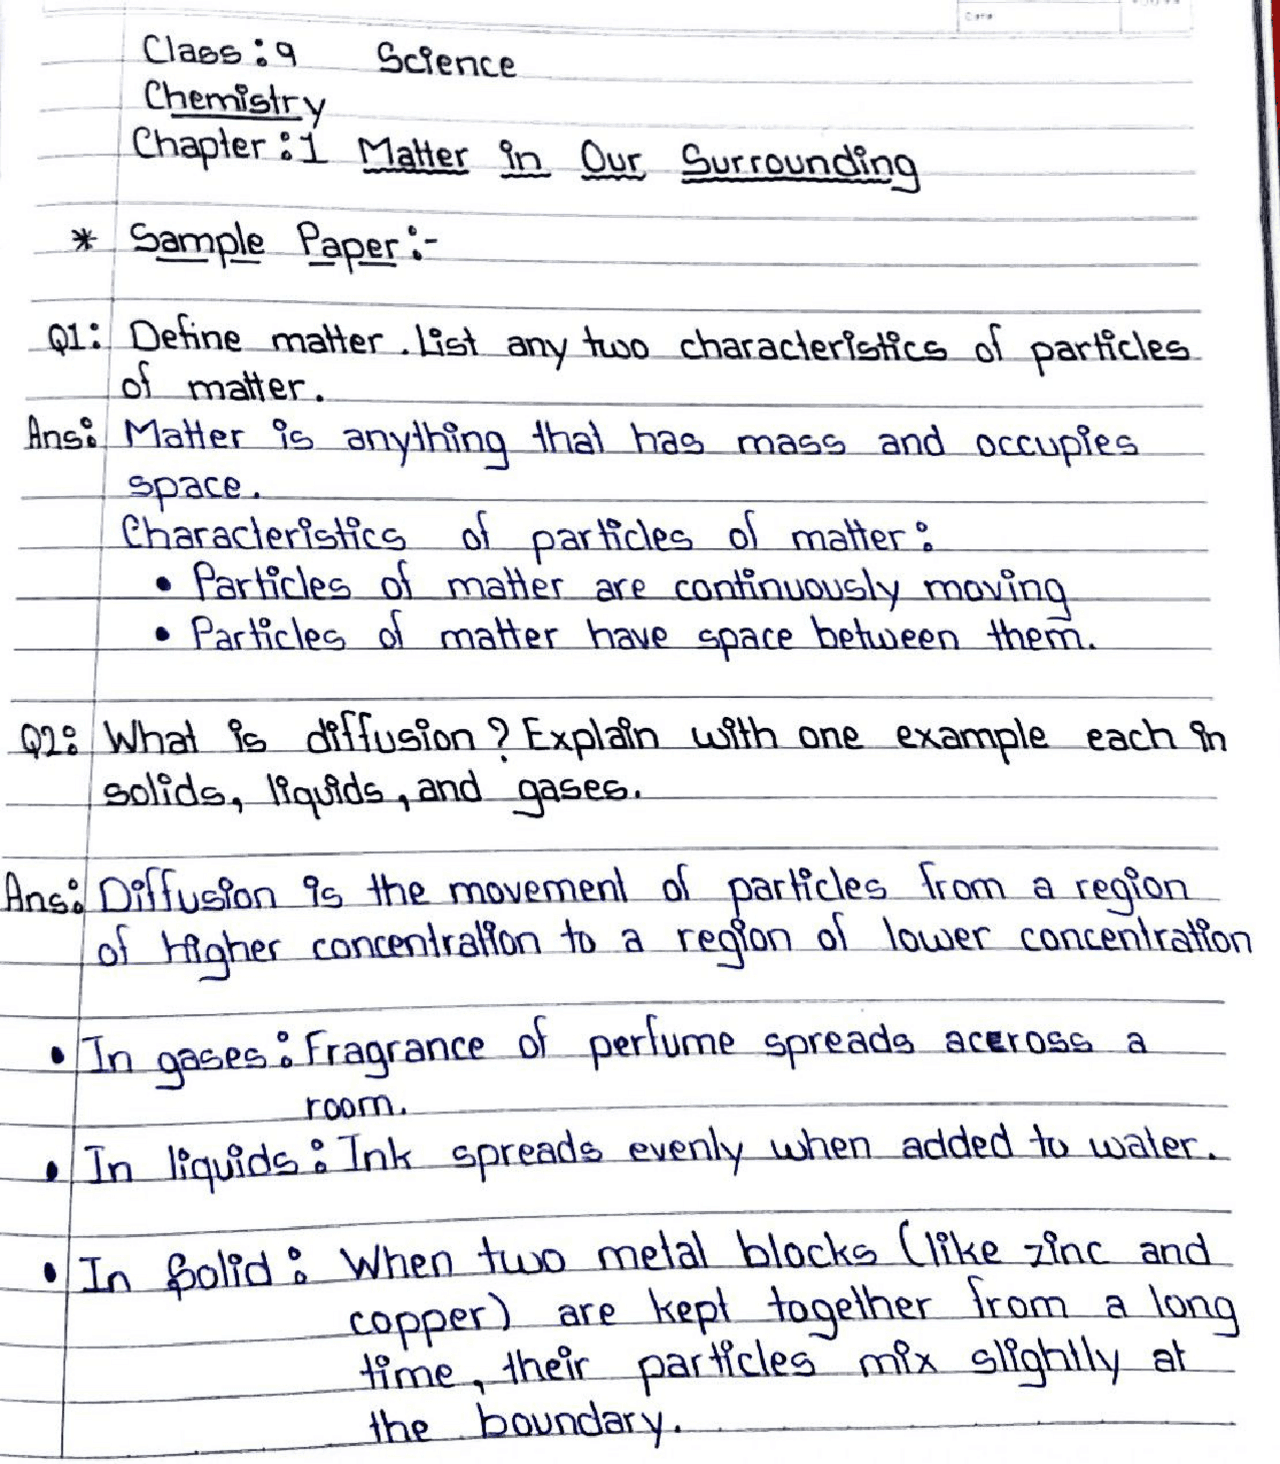 Date
Class : 9 Science
Chemistry
Chapter : 1 Matter in Our Surrounding
* Sample Paper :-
Q1: Define matter. List any two characteristics of particles
of matter.
Ans: Matter is anything that has mass and occupies
space.
Characteristics of particles of matter:
• Particles of matter are continuously moving
• Particles of matter have space between them.
Q2: What is diffusion? Explain with one example each in
solids, liquids, and gases.
Ans: Diffusion is the movement of particles from a region
of higher concentration to a region of lower concentration
• In gases: Fragrance of perfume spreads aceross a
room.
• In liquids: Ink spreads evenly when added to water.
• In Solid: When two metal blocks (like zinc and
copper) are kept together from a long
time, their particles mix slightly at
the boundary.